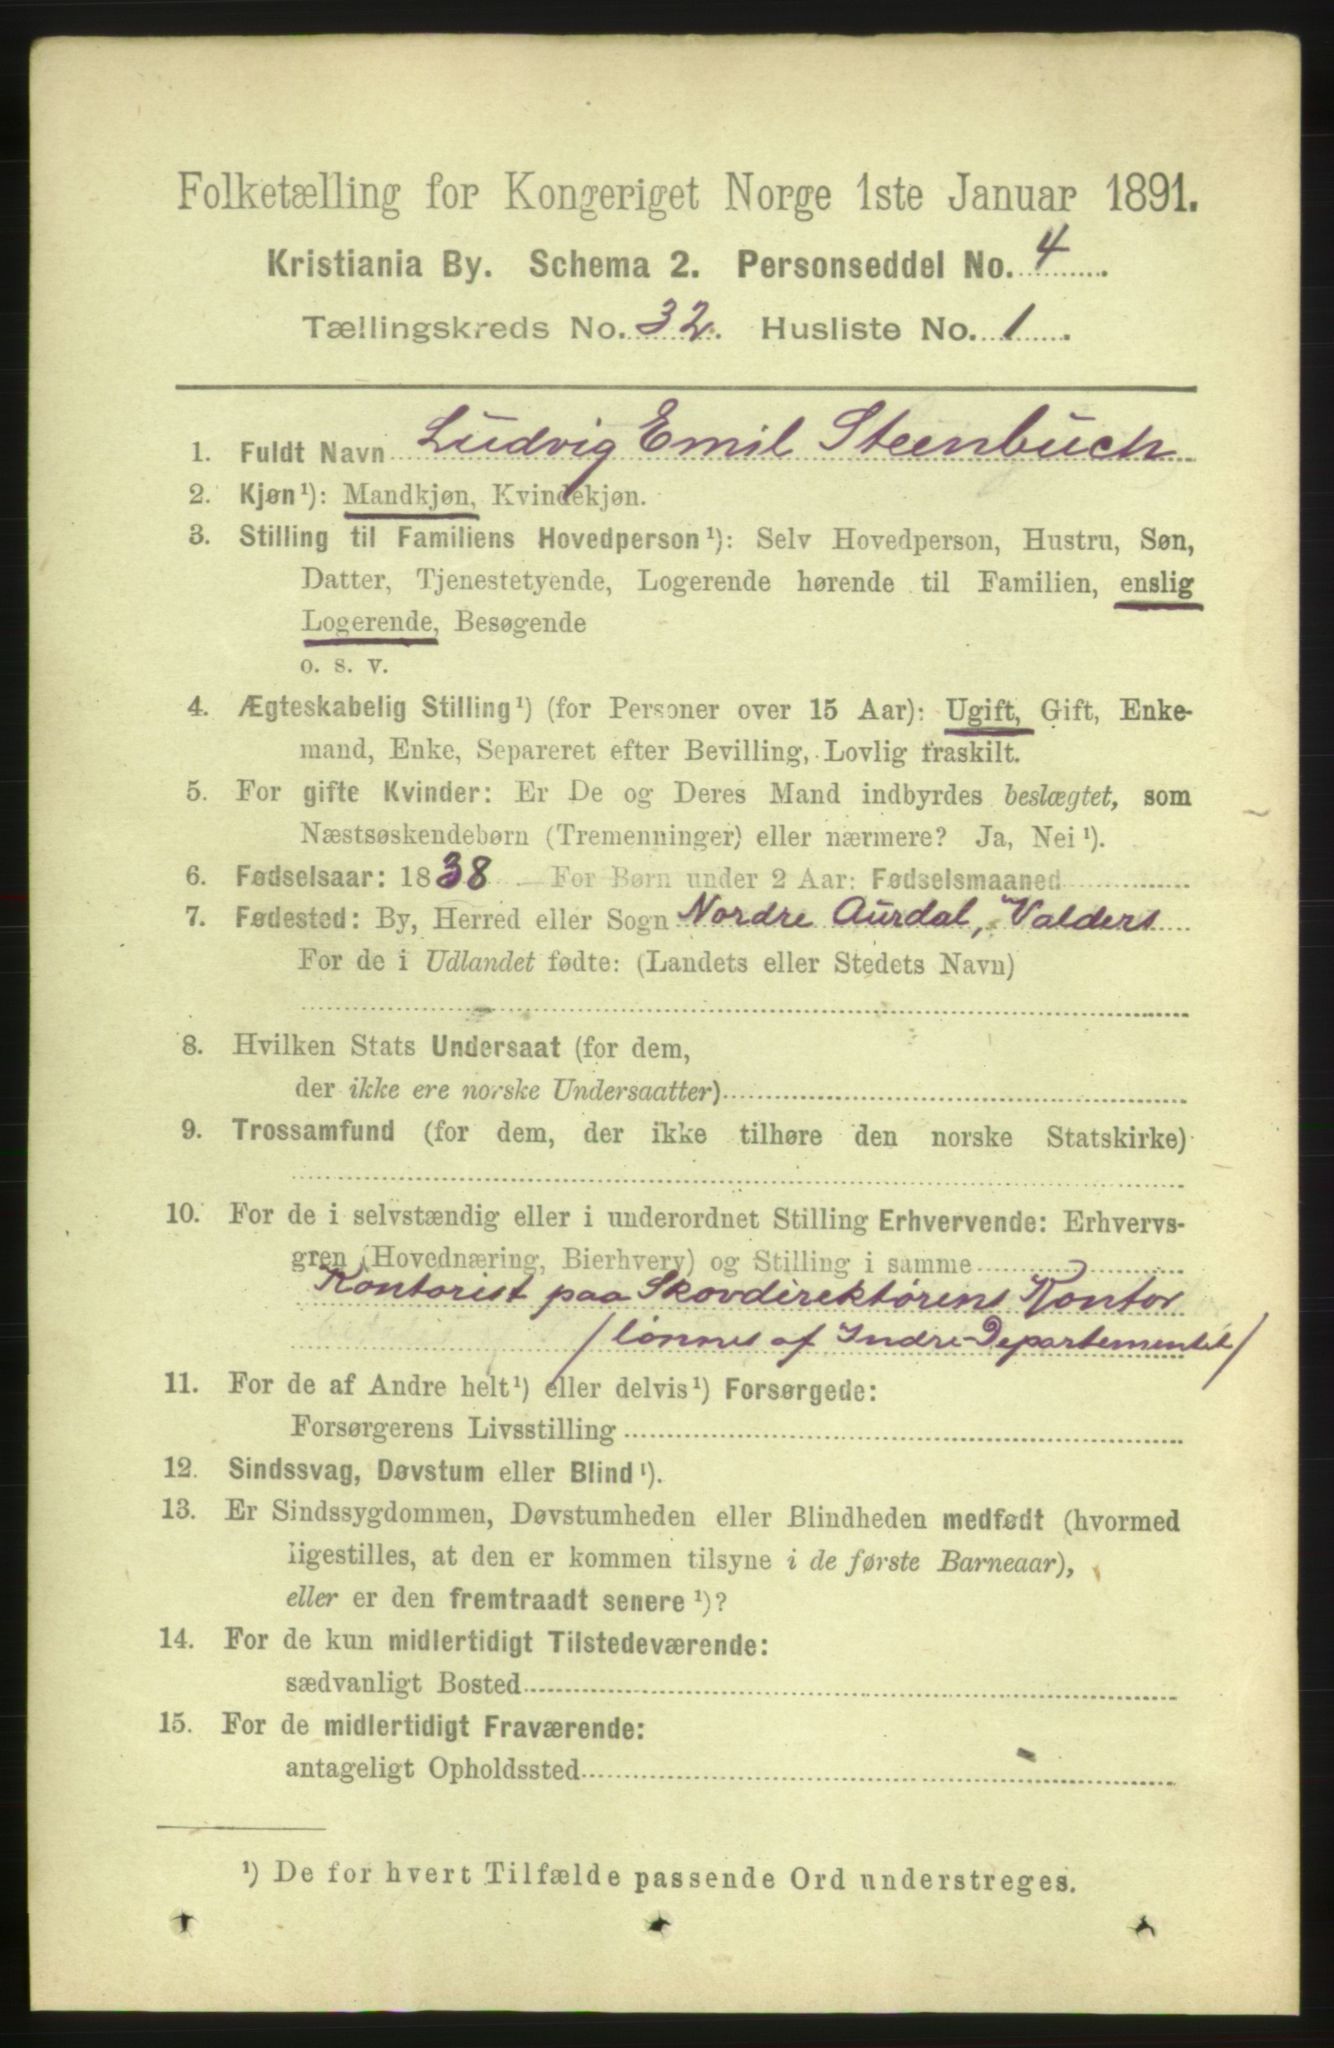 Folketælling for Kongeriget Norge 1ste Januar 1891.
Kristiania By. Schema 2. Personseddel No. 4.
Tællingskreds No. 32. Husliste No. 1.
1. Fuldt Navn Ludvig Emil Steenbuch
2. Kjøn¹): Mandkjøn, Kvindekjøn.
3. Stilling til Familiens Hovedperson¹): Selv Hovedperson, Hustru, Søn,
Datter, Tjenestetyende, Logerende hørende til Familien, enslig
Logerende, Besøgende
o. s. v.
4. Ægteskabelig Stilling¹) (for Personer over 15 Aar): Ugift, Gift, Enke-
mand, Enke, Separeret efter Bevilling, Lovlig fraskilt.
5. For gifte Kvinder: Er De og Deres Mand indbyrdes beslægtet, som
Næstsøskendebørn (Tremenninger) eller nærmere? Ja, Nei¹).
6. Fødselsaar: 1838 — For Børn under 2 Aar: Fødselsmaaned
7. Fødested: By, Herred eller Sogn Nordre Aurdal, Valders
For de i Udlandet fødte: (Landets eller Stedets Navn)
8. Hvilken Stats Undersaat (for dem,
der ikke ere norske Undersaatter)
9. Trossamfund (for dem, der ikke tilhøre den norske Statskirke)
10. For de i selvstændig eller i underordnet Stilling Erhvervende: Erhvervs-
gren (Hovednæring, Bierhverv) og Stilling i samme
Kontorist paa Skovdirektørens Kontor
/lønnes af Indre-Departementet/
11. For de af Andre helt¹) eller delvis¹) Forsørgede:
Forsørgerens Livsstilling
12. Sindssvag, Døvstum eller Blind¹).
13. Er Sindssygdommen, Døvstumheden eller Blindheden medfødt (hvormed
ligestilles, at den er kommen tilsyne i de første Barneaar),
eller er den fremtraadt senere¹)?
14. For de kun midlertidigt Tilstedeværende:
sædvanligt Bosted
15. For de midlertidigt Fraværende:
antageligt Opholdssted
¹) De for hvert Tilfælde passende Ord understreges.